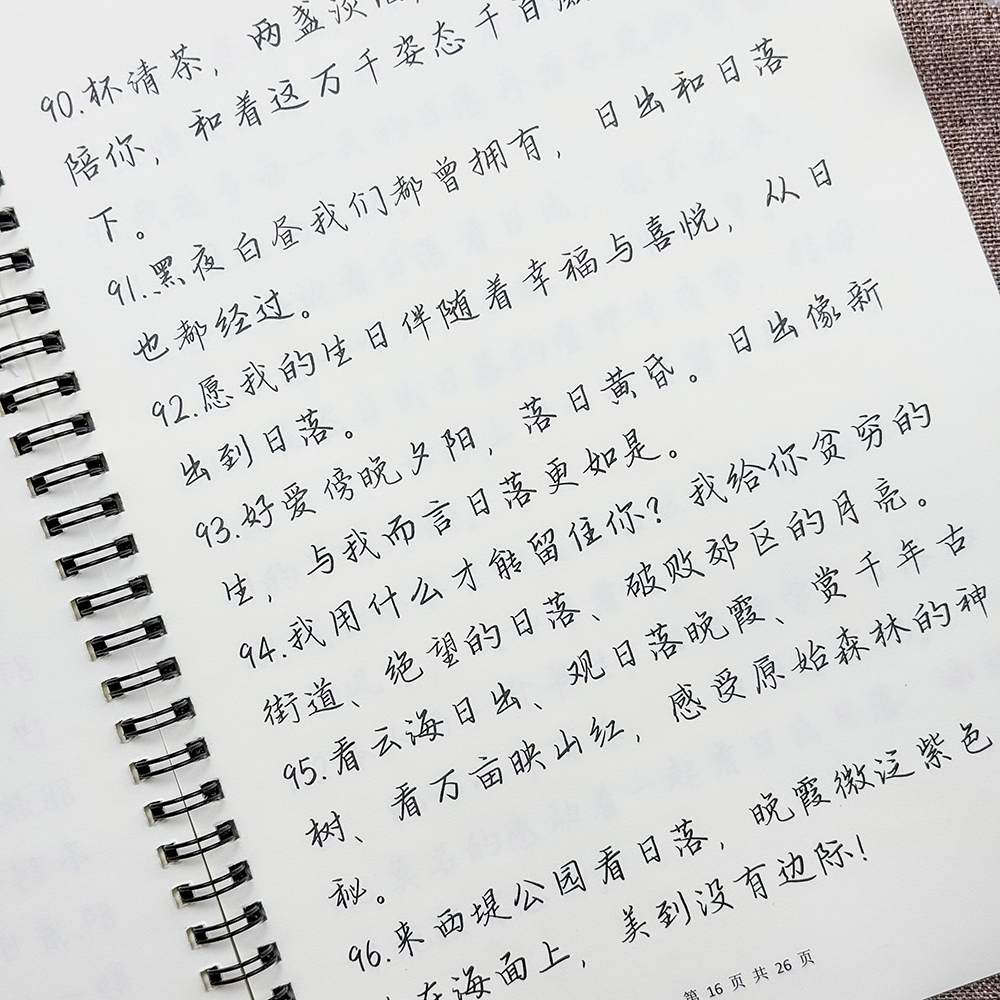 90.杯清茶，两盏淡
陪你，和着这万千姿态千百
下。
91.黑夜白昼我们都曾拥有，日出和日落
也都经过。
92.愿我的生日伴随着幸福与喜悦，从日
出到日落。
93.好爱傍晚夕阳，落日黄昏。日出像新
生，与我而言日落更如是。
94.我用什么才能留住你？我给你贫穷的
街道、绝望的日落、破败郊区的月亮。
95.看云海日出、观日落晚霞、赏千年古
树、看万亩映山红，感受原始森林的神
秘。
96.来西堤公园看日落，晚霞微泛紫色
在海面上，美到没有边际！
第 16 页 共 26 页